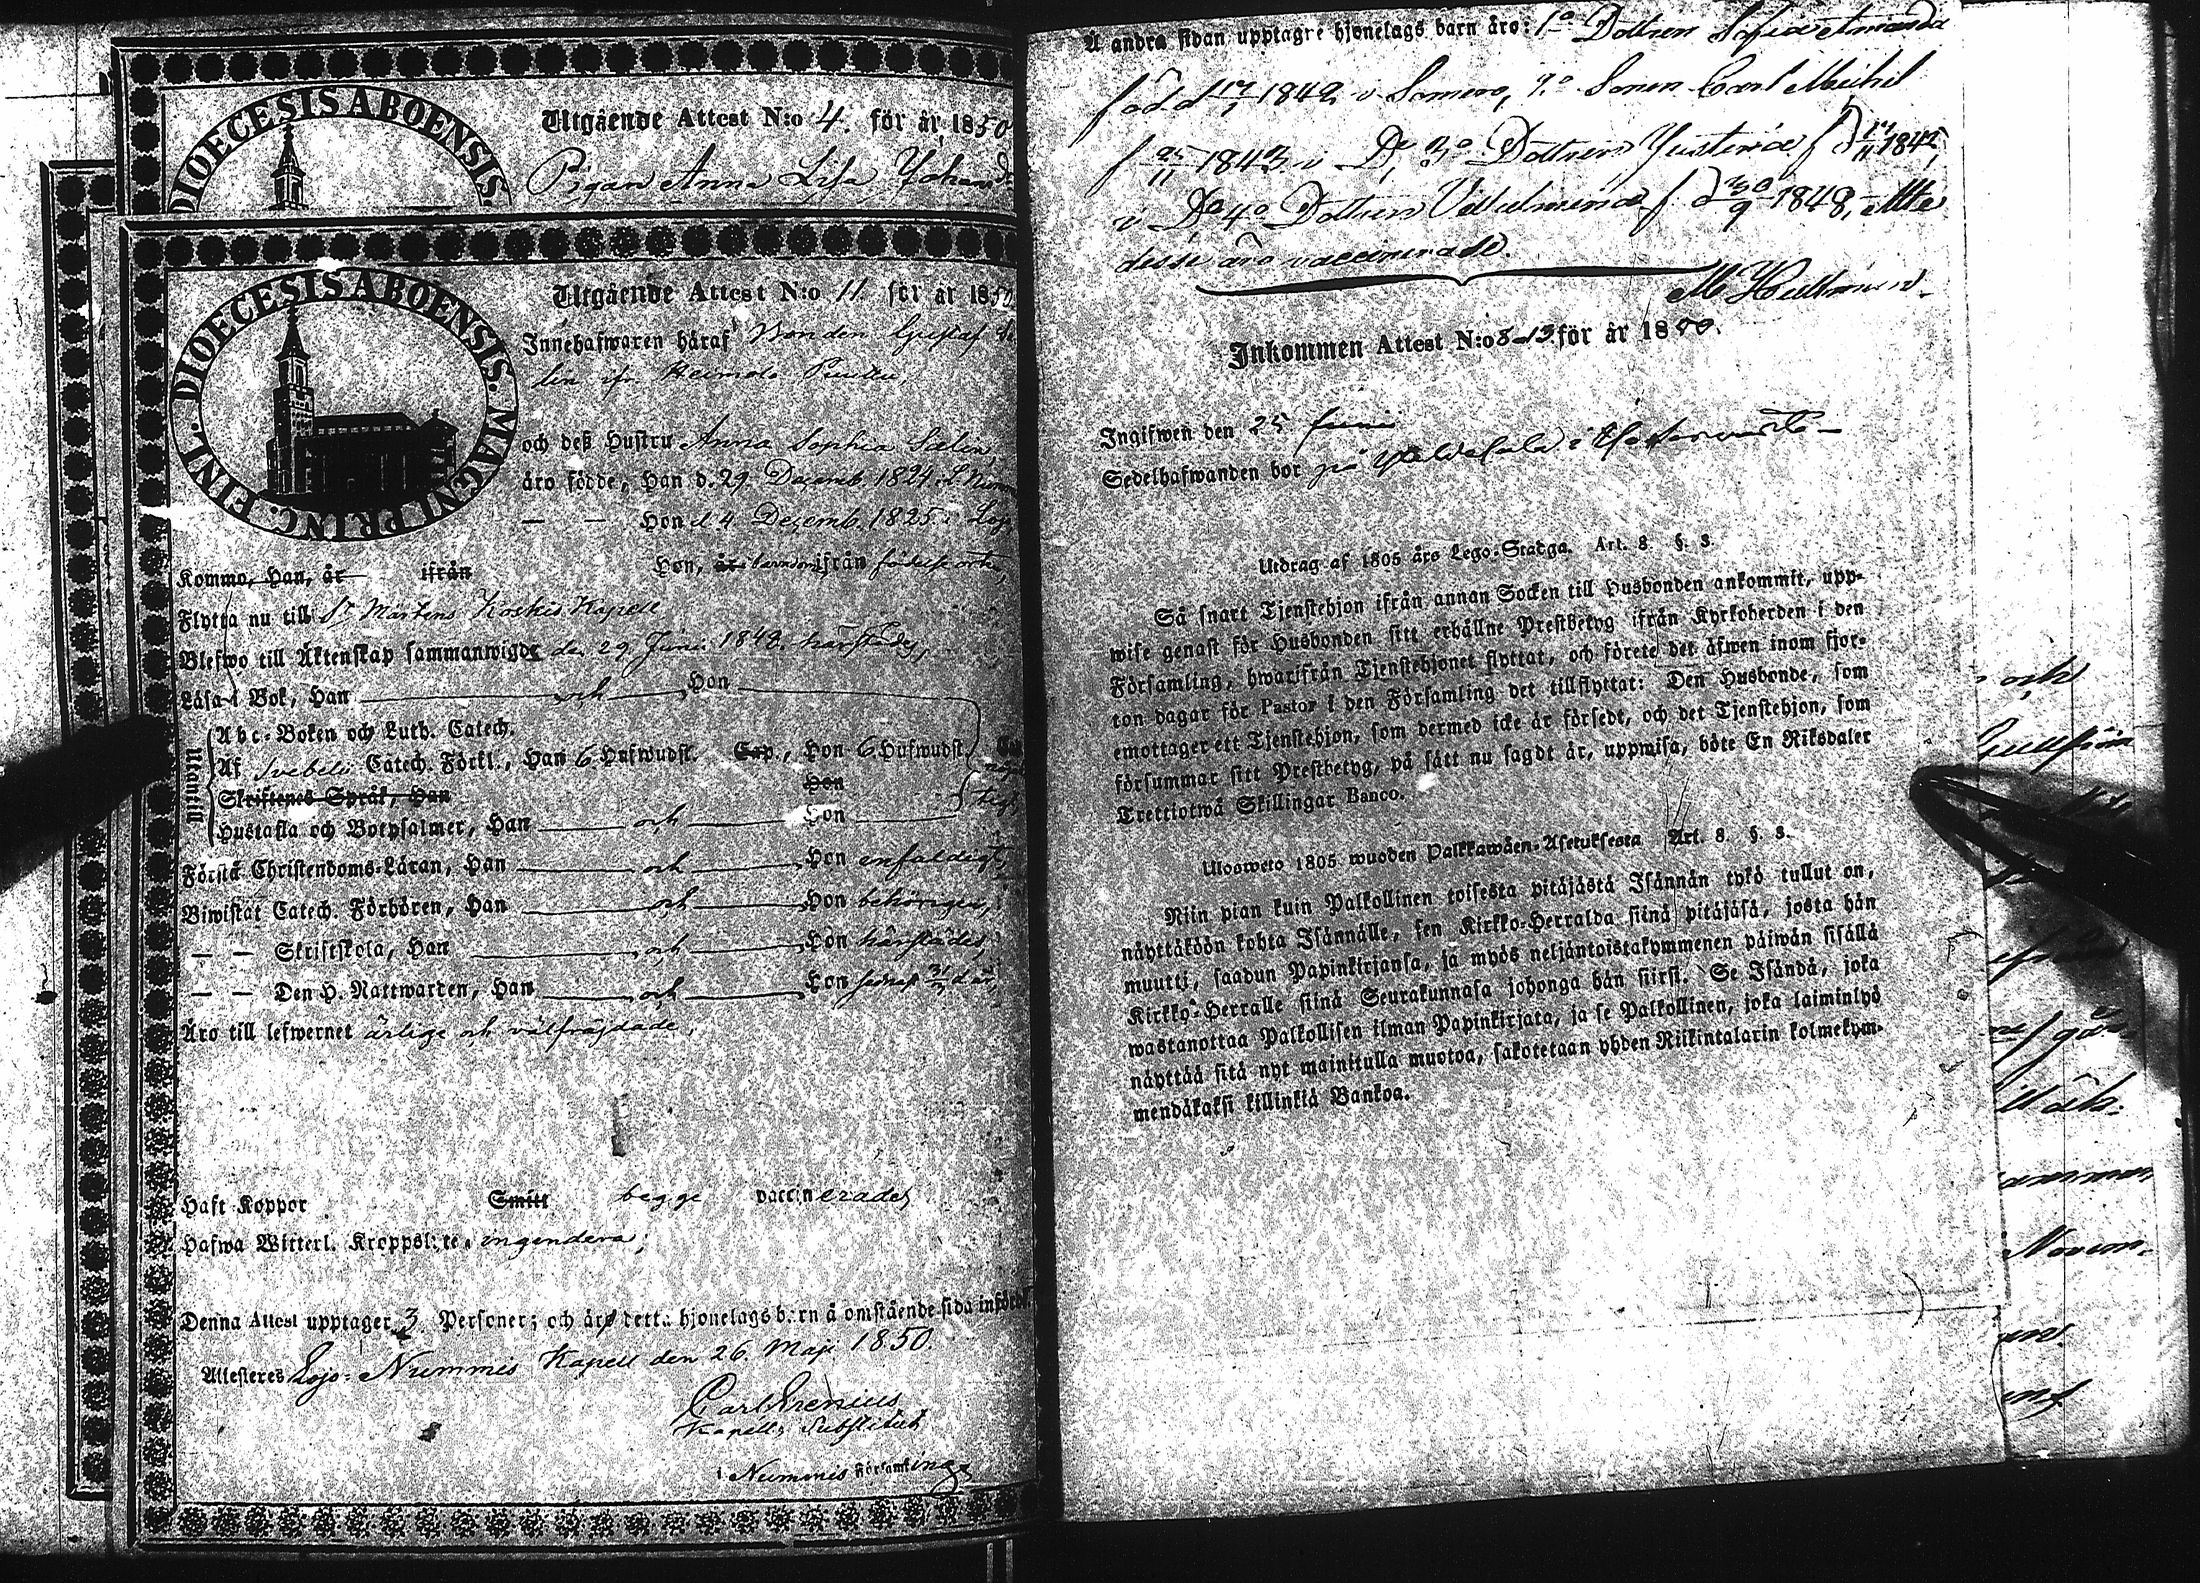 DIOECESIS ABOENSIS.
Utgående Attest N:o 4. för år 1850
Pigan Anna Lisa
DIOECESIS ABOENSIS. MAGNI PRINC. FINL.
Utgående Attest N:o 11. för år 1850
Innehafwaren häraf Bonden Gustaf
lin ifr. Heimola
och deß Hustru Anna Sophia Selin,
äro födde, Han d. 29 Decemb. 1824 i
— — Hon d. 4 Decemb. 1825 i Lojo
Komma, Han, är ifrån Hon, är barndomen ifrån födelse orten,
Flytta nu till St Mårtens Koskis Kapell
Blefwo till Äktenskap sammanwigde den 29 Junii 1849. härstädes,
Läsa i Bok, Han och Hon
Utantill
Abc-Boken och Luth. Catech.
Af Svebelii Catech. Förkl., Han 6. Hufwudst. Cap., Hon 6. Hufwudst.
Skriftenes Språk, Han Hon
Hustafla och Botpsalmer, Han och Hon
Förstå Christendoms-Läran, Han och Hon enfaldigt,
Biwistat Catech. Förhören, Han och Hon behörigen,
— — Skriftskola, Han och Hon härstädes,
— — Den H. Nattwarden, Han och Hon sednast d. år,
Äro till lefwernet ärlige och välfräjdade,
Haft Koppor Smitt begge vaccinerade,
Hafwa Witterl. Kroppslyte ingendera,
Denna Attest upptager 3 Personer; och äro detta hjonelags barn å omstående sida införde.
Attesteres Lojo-Nummis Kapell den 26. Maji 1850.
Carl
Kapells Substitut
i Nummis Församling
Å andra sidan upptagne hjonelags barn äro: 1o Dottren Sofia Amanda
född 1842 i Somero, 2o Sonen Carl Michel
f 25/11 1843 i Do, 3o Dottren Justina f. d
i Do 4o Dottren Vilhelmina f. d 30/9 1848, Alla
desse äro vaccinerade.
Inkommen Attest N:o 8-13 för år 1850.
Ingifwen den 25 Junii
Sedelhafwanden bor på
Utdrag af 1805 års Lego-Stadga. Art. 8. §. 3.
Så snart Tjenstehjon ifrån annan Socken till Husbonden ankommit, upp-
wise genast för Husbonden sitt erhållne Prestbetyg ifrån Kyrkoherden i den
Församling, hwarifrån Tjenstehjonet flyttat, och förete det äfwen inom fjor-
ton dagar för Pastor i den Församling det tillflyttat: Den Husbonde, som
emottager ett Tjenstehjon, som dermed icke är försedt, och det Tjenstehjon, som
försummar sitt Prestbetyg, på sätt nu sagdt är, uppwisa, böte En Riksdaler
Trettiotwå Skillingar Banco.
Ulosweto 1805 wuoden Palkkawäen-Asetuksesta Art. 8. §. 3.
Niin pian kuin Palkollinen toisesta pitäjästä Isännän tykö tullut on,
näyttäköön kohta Isännälle, sen Kirkko-Herralda siinä pitäjäsä, josta hän
muutti, saadun Papinkirjansa, ja myös neljäntoistakymmenen päiwän sisällä
Kirkko-Herralle siinä Seurakunnasa johonga hän siirsi. Se Isändä, joka
wastanottaa Palkollisen ilman Papinkirjata, ja se Palkollinen, joka laiminlyö
näyttää sitä nyt mainitulla muotoa, sakotetaan yhden Riikintalarin kolmekym-
mendäkaksi killinkiä Bankoa.